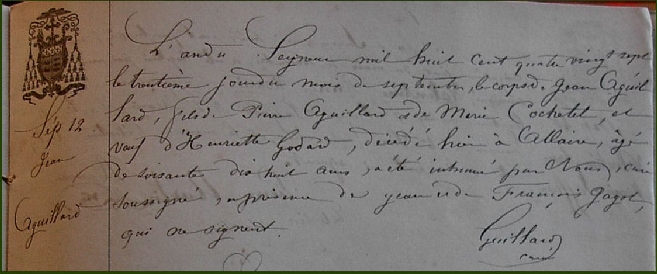 Sép 12
Jean
Aguillard
L'an du Seigneur mil huit cent quatre vingt sept
le trentième jour du mois de septembre, le corps de Jean Aguil
lard, fils de Pierre Aguillard & de Marie Cochetel, et
veuf d'Henriette Godard, décédé hier à Allaire, âgé
de soixante dix huit ans, a été inhumé par Nous, curé
soussigné en présence de Jean et de François Gagot,
qui ne signent.
Guillard
curé